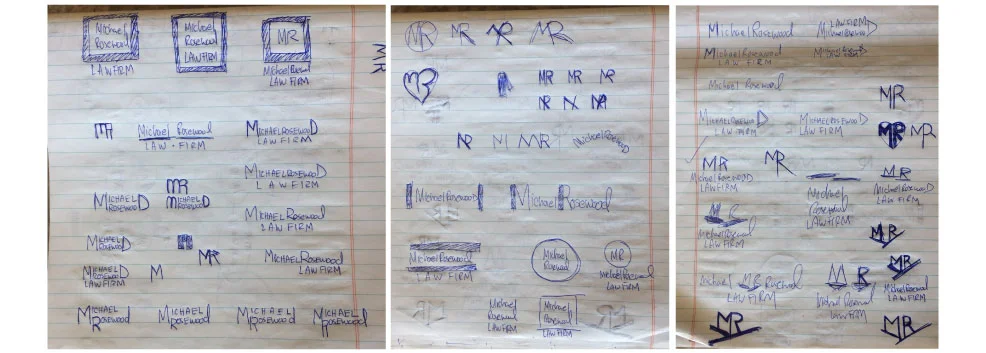 Michael
Rosewood
LAW FIRM
Michael
Rosewood
LAW FIRM
MR
Michael Rosewood
LAW FIRM
MR
MR
Michael Rosewood
LAW · FIRM
MICHAEL ROSEWOOD
LAW FIRM
MICHAEL
ROSEWOOD
MR
MICHAEL
ROSEWOOD
MICHAEL ROSEWOOD
LAW FIRM
MICHAEL Rosewood
LAW FIRM
MICHAEL
ROSEWOOD
MR
MICHAEL Rosewood
LAW FIRM
MICHAEL
ROSEWOOD
LAW FIRM
M
MICHAEL
Rosewood
MICHAEL
Rosewood
MICHAEL
Rosewood
MICHAEL
Rosewood
MR
MR
MR
MR
MR
MR
MR
MR
MR
MR
MR
MR
MR
Michael Rosewood
Michael Rosewood
Michael Rosewood
Michael Rosewood
LAW FIRM
Michael
Rosewood
MR
Michael Rosewood
LAW FIRM
Michael
Rosewood
LAW FIRM
Michael
Rosewood
LAW FIRM
Michael Rosewood
LAW FIRM
Michael Rosewood
Michael Rosewood
LAW FIRM
Michael Rosewood
MR
MICHAEL ROSEWOOD
LAW FIRM
MICHAEL ROSEWOOD
LAW FIRM
MR
MR
MR
Michael Rosewood
LAW FIRM
MR
MR
Michael Rosewood
LAW FIRM
Michael
Rosewood
LAW FIRM
MR
Michael Rosewood
LAW FIRM
MR
Michael MR Rosewood
LAW FIRM
MR
Michael Rosewood
LAW FIRM
MR
Michael Rosewood
LAW FIRM
MR
MR